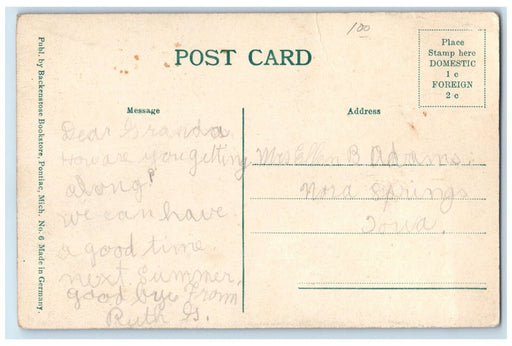 100
POST CARD
Place
Stamp here
DOMESTIC
1 c
FOREIGN
2 c
Message
Address
Publ. by Backenstose Bookstore, Pontiac, Mich. No. 6 Made in Germany.
Dear Granda
how are you getting
along?
we can have
a good time
next Summer.
good bye From
Ruth G.
Mrs Ellen B Adams.
Nora Springs
Iowa.